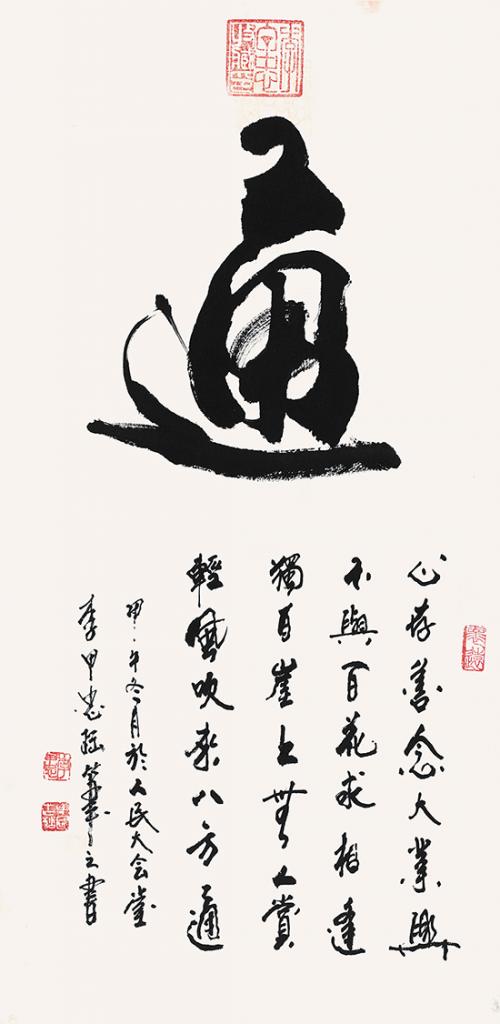 通
心存善念大業興
不與百花求相逢
獨自崖上無人賞
輕風吹來八方通
甲午冬月於人民大会堂
李甲忠之書